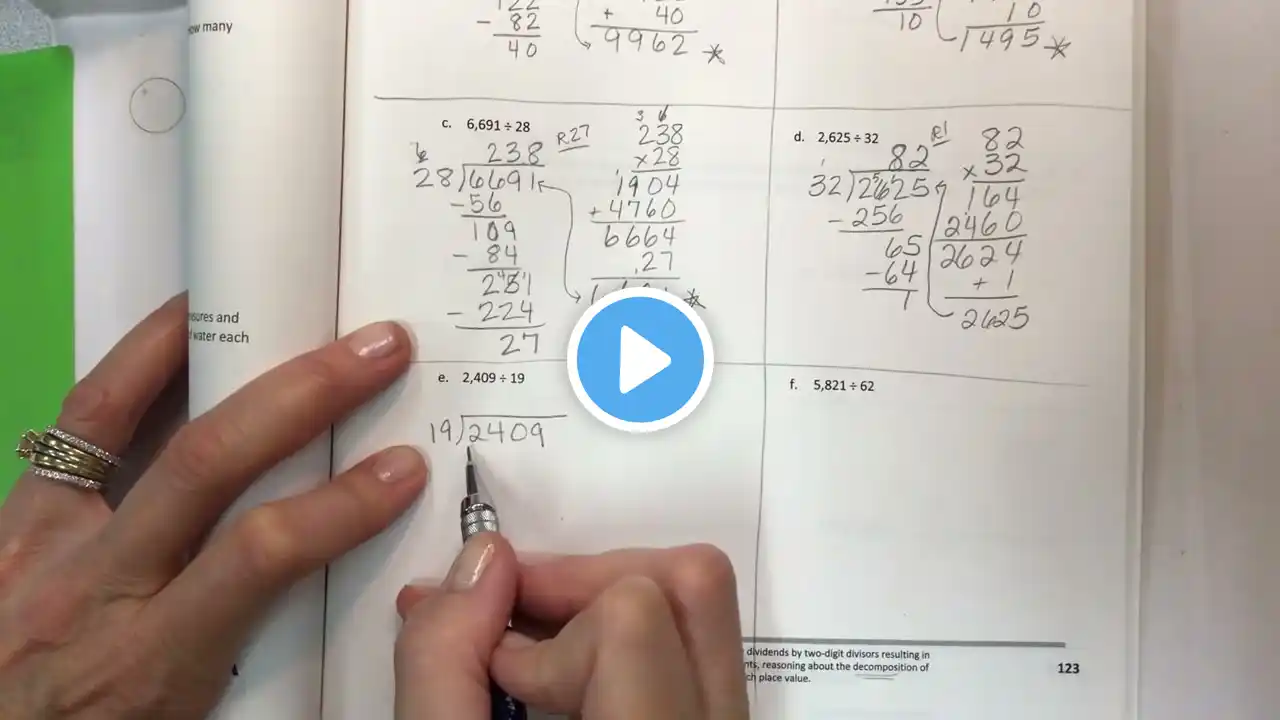 ow many
122
- 82
40
+ 40
9962 *
10
10
1495 *
c. 6,691 ÷ 28
R27
238
28)6691
-56
109
- 84
- 224
27
3 6
238
x28
1904
+4760
6664
27
d. 2,625 ÷ 32
R1
82
32)2625
- 256
65
-64
1
82
x32
164
2460
2624
+ 1
2625
sures and
water each
e. 2,409 ÷ 19
19)2409
f. 5,821 ÷ 62
dividends by two-digit divisors resulting in
nts, reasoning about the decomposition of
ch place value.
123